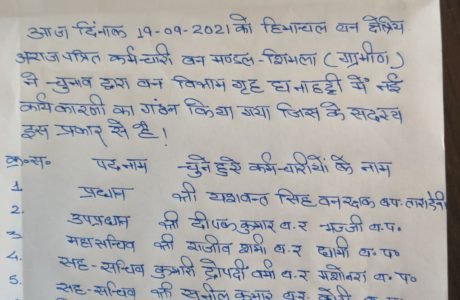 आज दिनांक 19-09-2021 को हिमाचल वन क्षेत्रिय
अराजपत्रित कर्मचारी वन मण्डल-शिमला (ग्रामीण)
में चुनाव द्वारा वन विभाग गृह हीरानगर में नई
कार्यकारणी का गठन किया गया जिस के सदस्य
इस प्रकार से है।
क्र०स० पद नाम चुने हुऐ कर्मचारीयों के नाम
1. प्रधान श्री यशवन्त सिंह वन रक्षक वप. तारादेवी
2. उपप्रधान श्री दीपक कुमार व.र भज्जी व.प.
3. महासचिव श्री राजीव शर्मा व.र धामी व.प.
4. सह-सचिव कुमारी द्रोपदी वर्मा व.र मशोबरा व.प.
5. सह-सचिव श्री सुनील कुमार व.र